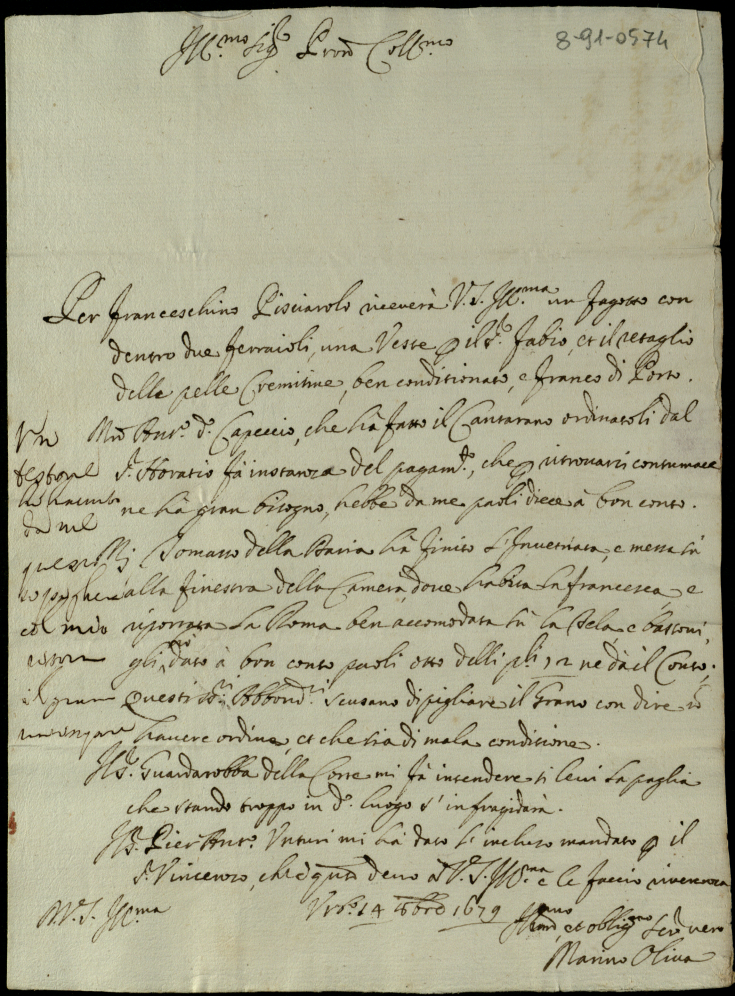 8-91-0574
Ill.mo Sig.r Pron Coll.mo
Per Franceschino Pisciarolo riceverà V.S. Ill.ma un fagotto con
dentro due ferraioli, una Veste p il S.r Fabio, et il retaglio
delle pelle Cremisine, ben conditionato, e franco di Porto.
Mro Ant.o d.o Capeccio, che hà fatto il Cantarano ordinatoli dal
S.r Horatio fà instanza del pagam.to, che p ritrovarsi contumace
ne hà gran bisogno, hebbe da me paoli diece à bon conto.
Tomasso della Baria hà finito l'Invetriata, e messa sù
alla finestra della Camera, dove habita la Francesca, e
riportata la Roma ben accomodata sù la tela, e bastoni,
gli dato à bon conto paoli otto delli pli 12 ne dà il Conto.
Questi SS.ri Abbond.ri scusano di pigliare il Grano con dire
havere ordine, et che sia di mala conditione.
Il S.r Guardarobba della Corte mi fà intendere si levi la paglia
che stando troppo in d.o luogo s'infragidarà.
Il S.r Pier Ant.o Unturi mi hà dato l'incluso mandato p il
S.r Vincenzo, ch'è q.to devo à V.S. Ill.ma e le faccio riverenza
Urb.o 14 8bre 1679
V.S. Ill.ma
Hum.mo et oblig.mo Ser.re vero
Marino Oliva
Un
testone
da me
col mio